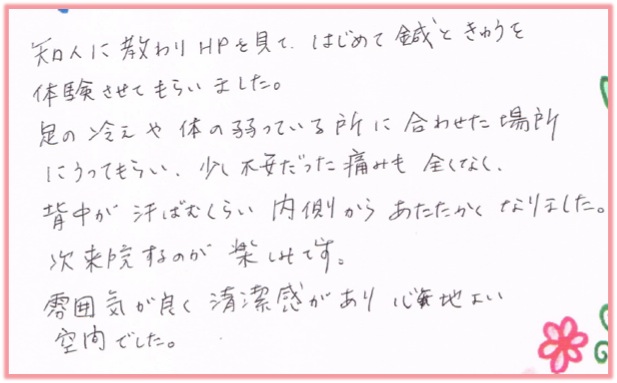 知人に教わりHPを見て、はじめて鍼ときゅうを
体験させてもらいました。
足の冷えや体の弱っている所に合わせた場所
にうってもらい、少し不安だった痛みも全くなく、
背中が汗ばむくらい内側からあたたかくなりました。
次来院するのが楽しみです。
雰囲気が良く清潔感があり心地よい
空間でした。